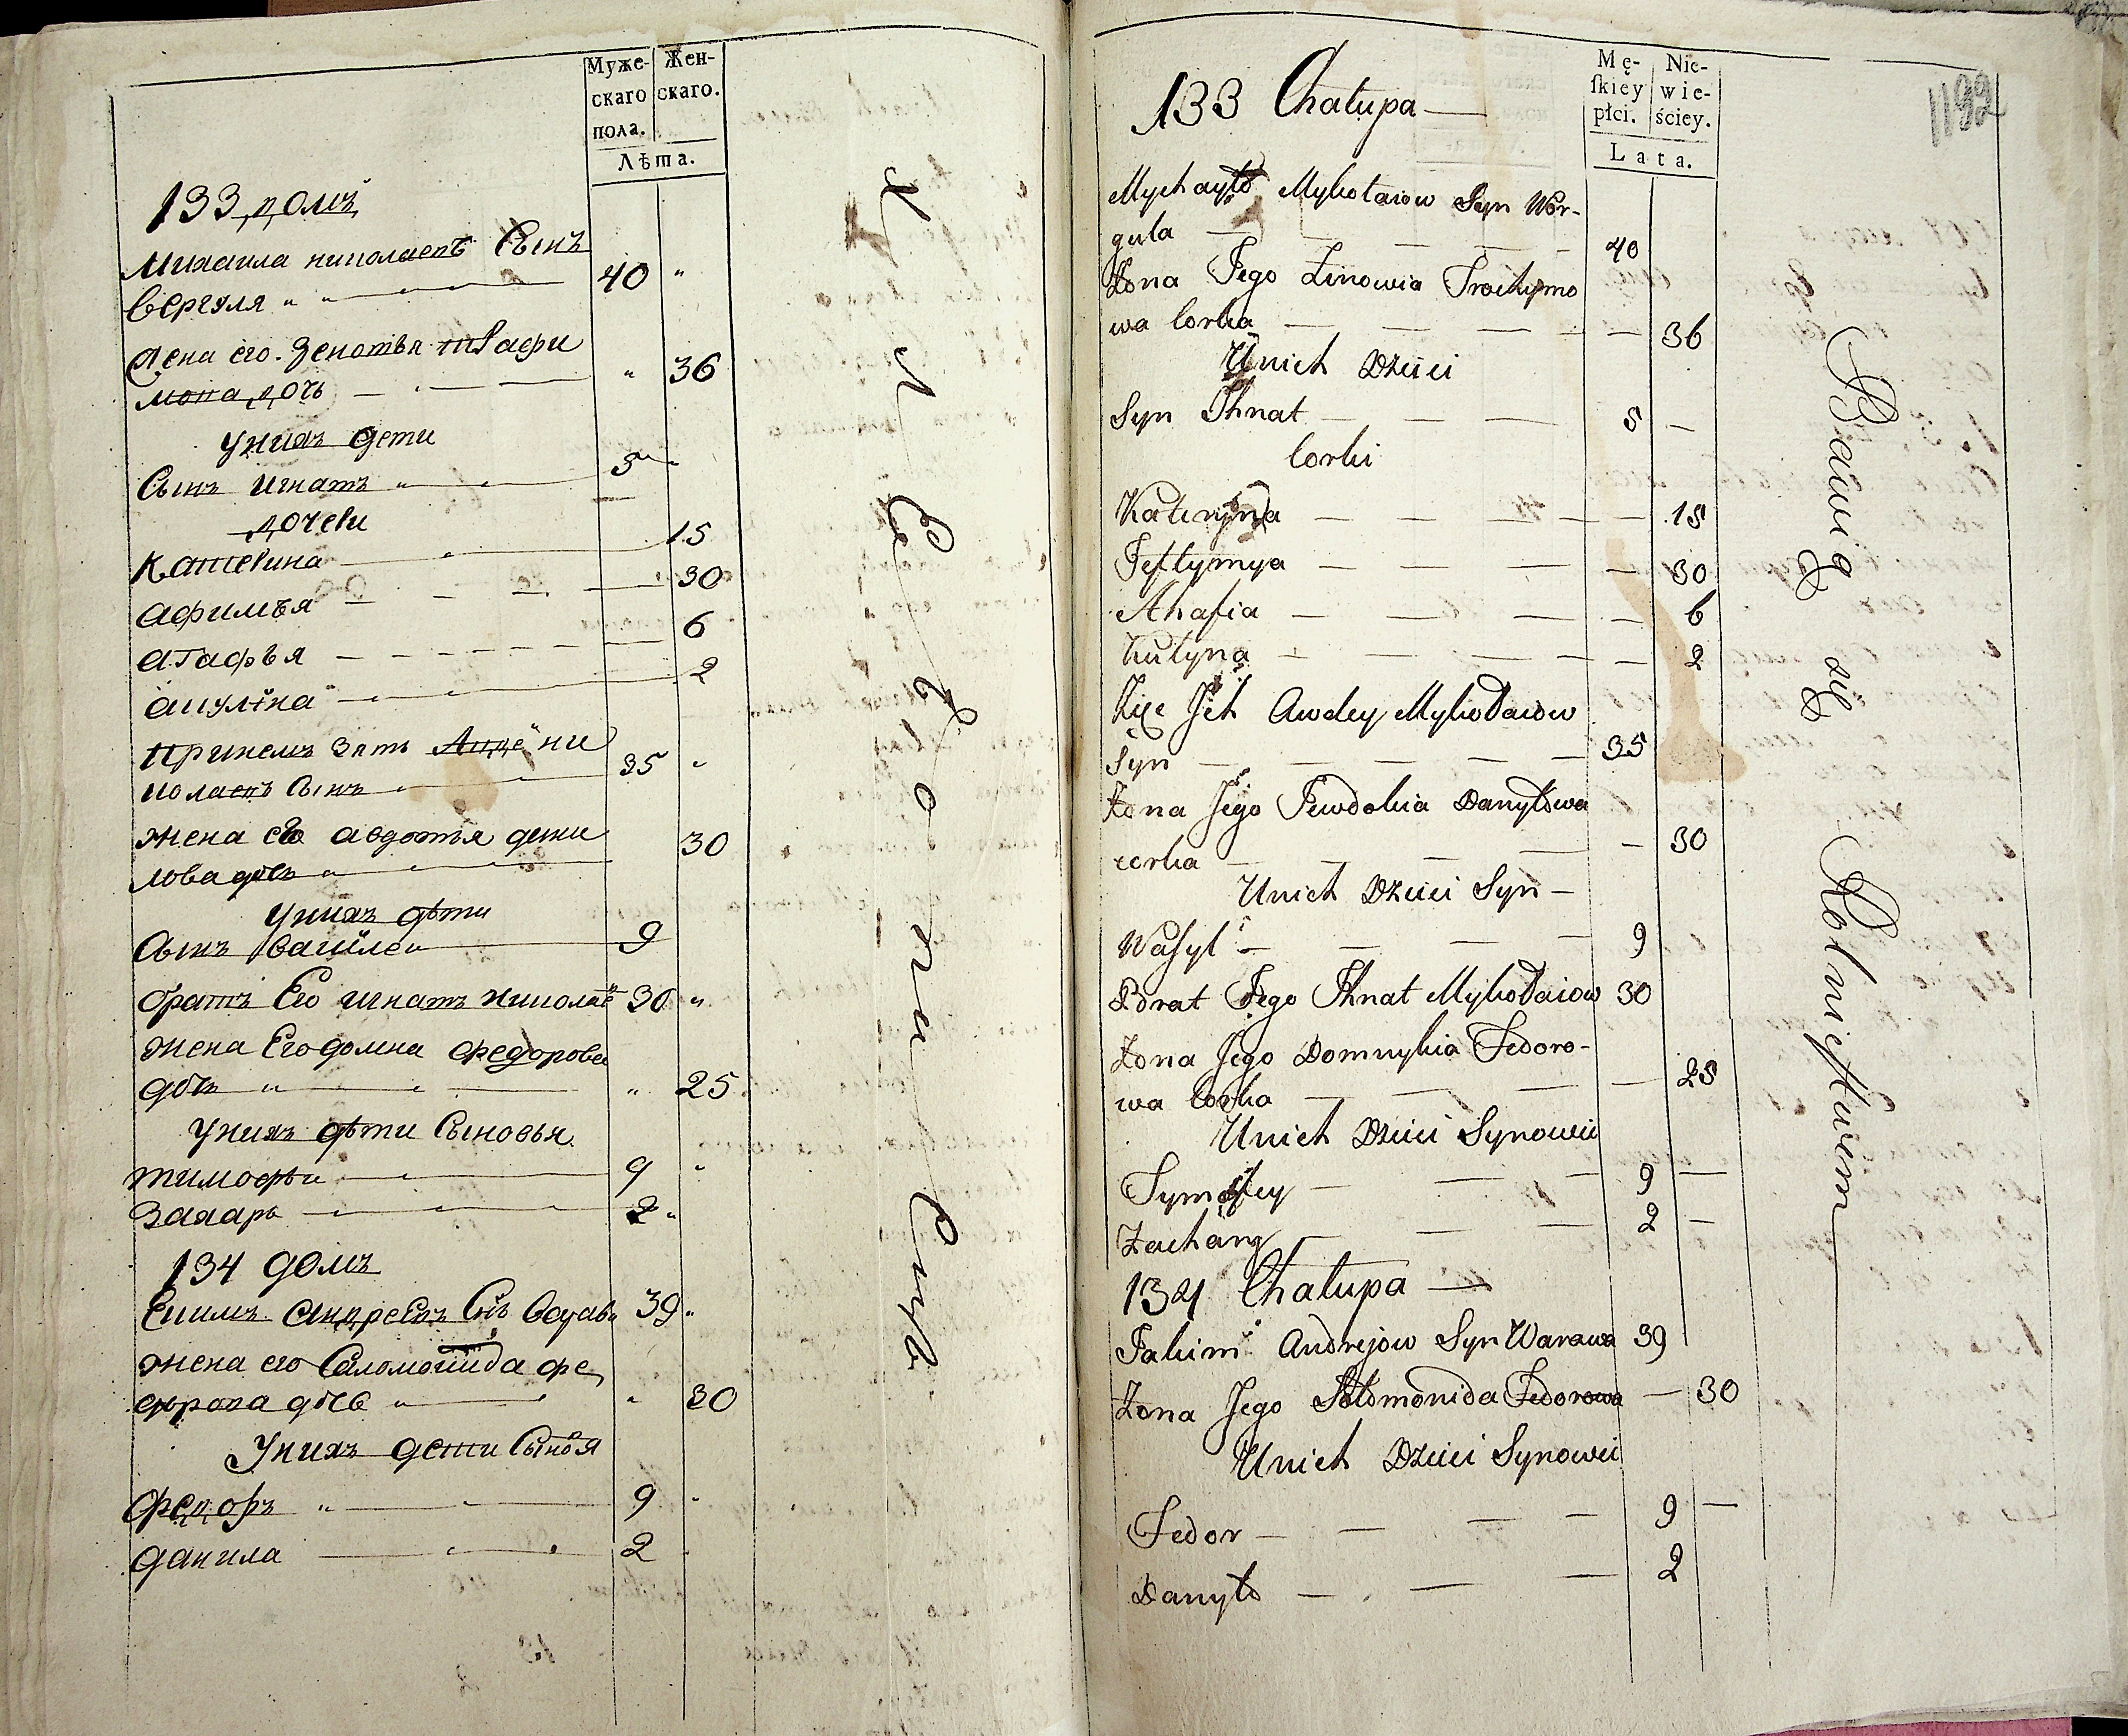 Муже-
скаго
пола.
Жен-
скаго.
Лѣта.
133 домъ
Михаила николаевъ Сынъ
вергуля 40
Жена его Зеновья трафи
мова дочь 36
У нихъ дети
Сынъ игнатъ 5
дочери
Катерина 15
афимъя 30
агафъя 6
акулина 2
35
колаевъ Сынъ
жена его авдотья дани
лова дочь 30
У нихъ дѣти
Сынъ василеи 9
братъ Его игнатъ николае 30
жена Его домна федорова
дочь 25
У нихъ дѣти Сыновья
тимофѣи 9
Захаръ 2
134 домъ
Екимъ андреевъ Сынъ 39
жена его Саломонида фе
дорова дочь 30
У нихъ дети Сыновья
федоръ 9
данила 2
Mę-
ſkiey
płci.
Nie-
wie-
ściey.
Lata.
133 Chałupa
Mychayło Mykołaiow Syn Wor-
guła 40
Żona Jego Zinowia Trochymo
wa Corka 36
U nich Dzieci
Syn Ihnat 5
Corki
Kateryna 15
Jeftymya 30
Ahafia 6
Kulyna 2
Awdey Mykołaiow
Syn 35
Żona Jego Jewdokia Danyłowa
corka 30
U nich Dzieci Syn
Waſyl 9
Brat Jego Ihnat Mykołaiow 30
Żona Jego Domnykia Fedoro-
wa Corka 25
U nich Dzieci Synowie
Tymofey 9
Zachary 2
134 Chałupa
Jakim Andrejow Syn Warawa 39
Żona Jego Sołomonida Fedorowa 30
U nich Dzieci Synowie
Fedor 9
Danyło 2
Bawią się Rolnictwem